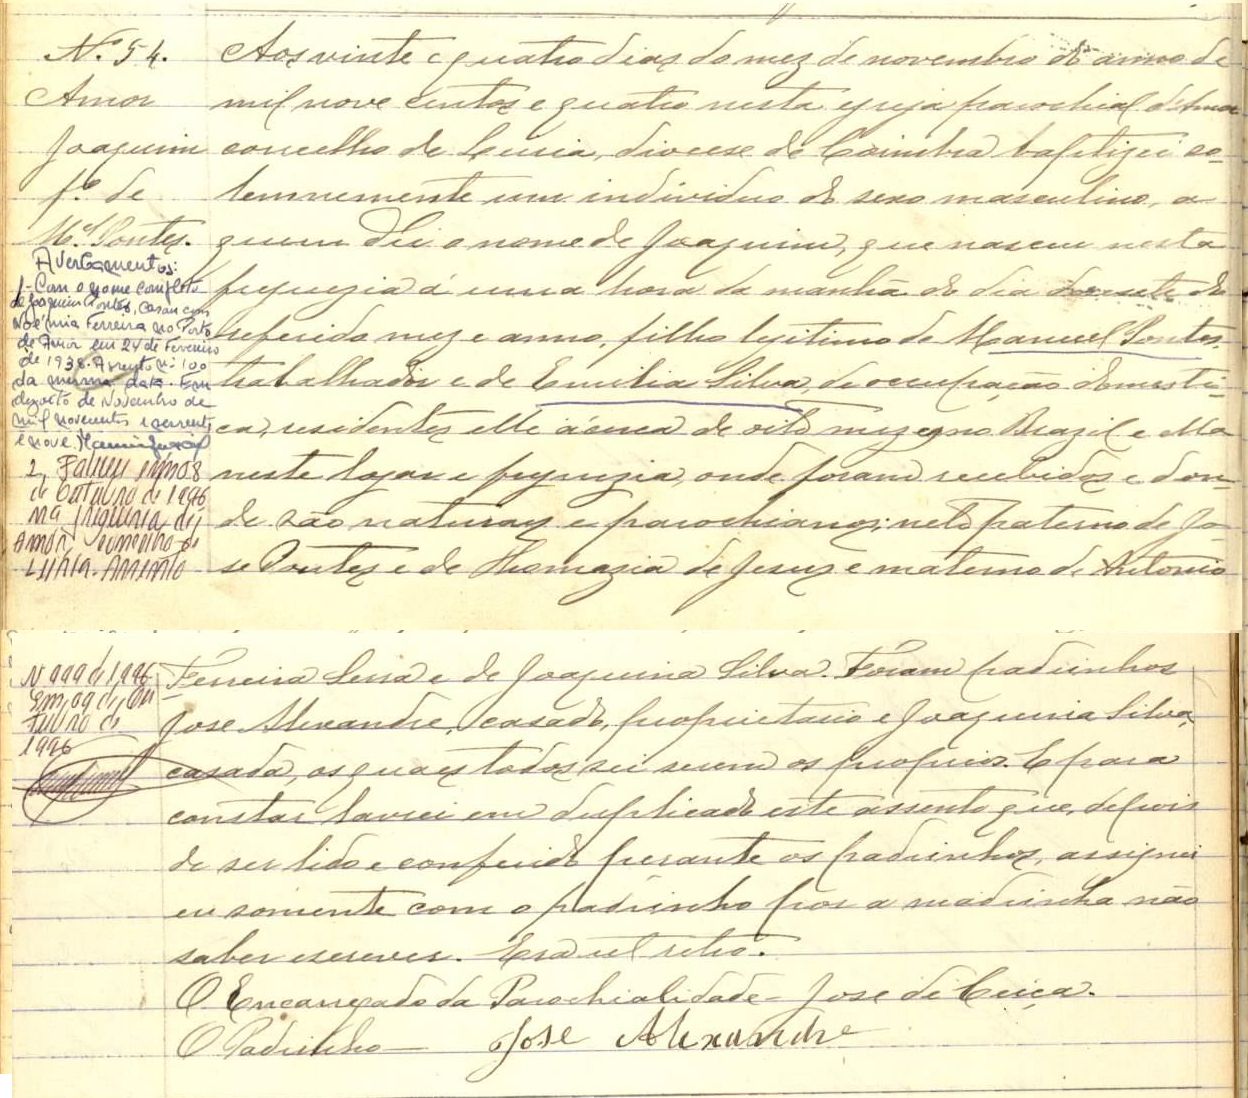 Nº 54.
Amor
Joaquim
fº de
Mel Pontes.
Avertamentos:
1- Com o nome completo
de Joaquim Pontes, casou com
Noémia Ferreira no Porto
de Amor em 24 de Fevereiro
de 1938. Assento nº 100
da mesma data. Em
dezoito de Novembro de
mil novecentos e
e nove.
2, Faleceu
de Outubro de 1996
na freguesia de
Amor, concelho de
Leiria. Assento
Aos vinte e quatro dias do mez de novembro do anno de
mil nove centos e quatro nesta egreja parochial d'Amor
concelho de Leiria, diocese de Coimbra baptizei so-
lemnemente um individuo do sexo masculino, a
quem dei o nome de Joaquim, que nasceu nesta
freguezia á uma hora da manhã do dia do
referido mez e anno, filho legitimo de Manuel Pontes,
trabalhador e de Emilia Silva, de occupação domesti-
ca, residentes elle á cerca de oito mezes no Brazil e ella
neste logar e freguezia, onde foram recebidos e don-
de são naturaes e parochianos; neto paterno de Jo-
se Pontes e de Thomazia de Jesus e materno de Antonio
Nº 999 de 1996
Em 09 de Ou
tubro de
1996
Ferreira Serra e de Joaquina Silva. Foram padrinhos
Jose Alexandre, casado, proprietario e Joaquina Silva,
casada, os quaes todos sei serem os proprios. E para
constar lavrei em duplicado este assento que, depois
de ser lido e conferido perante os padrinhos, assignei
eu somente com o padrinho por a madrinha não
saber escrever. Era ut retro.
O Encarregado da Parochialidade - Jose de Ceiça.
O Padrinho - Jose Alexandre